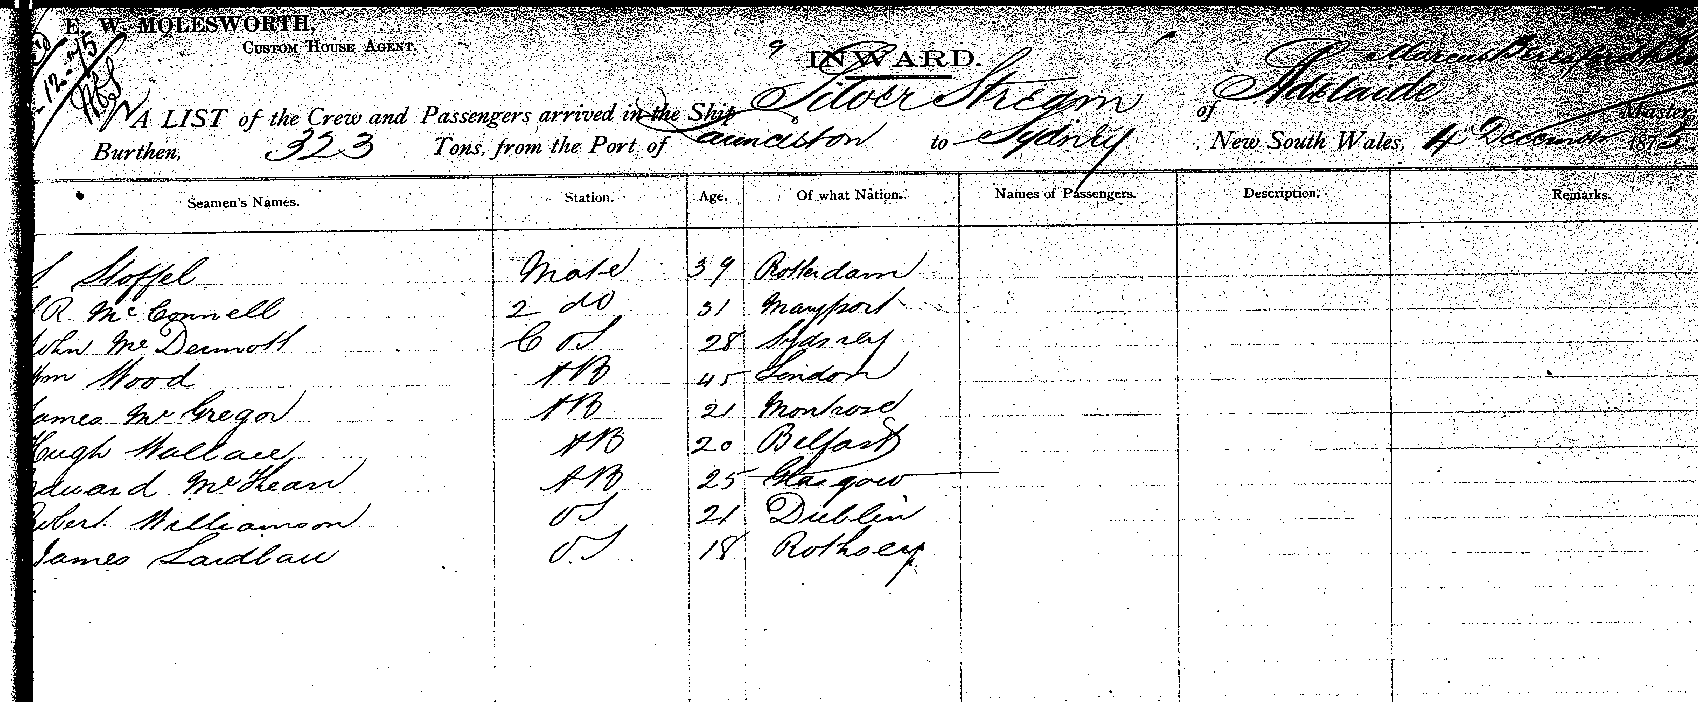 E. W. MOLESWORTH,
CUSTOM HOUSE AGENT.
12-75
INWARD.
A LIST of the Crew and Passengers arrived in the Ship Silver Stream of Adelaide
Burthen, 323 Tons, from the Port of Launceston to Sydney New South Wales, 4 December 1875
Seamen's Names. Station. Age. Of what Nation. Names of Passengers. Description. Remarks.
Stoffel Mate 39 Rotterdam
R McConnell 2 do 31 Maryport
John McDermott C & S 28 Sydney
Wm Wood AB 45 London
James McGregor AB 21 Montrose
Hugh Wallace AB 20 Belfast
Edward McKean AB 25 Glasgow
Robert Williamson OS 21 Dublin
James Laidlaw OS 18 Rothsey